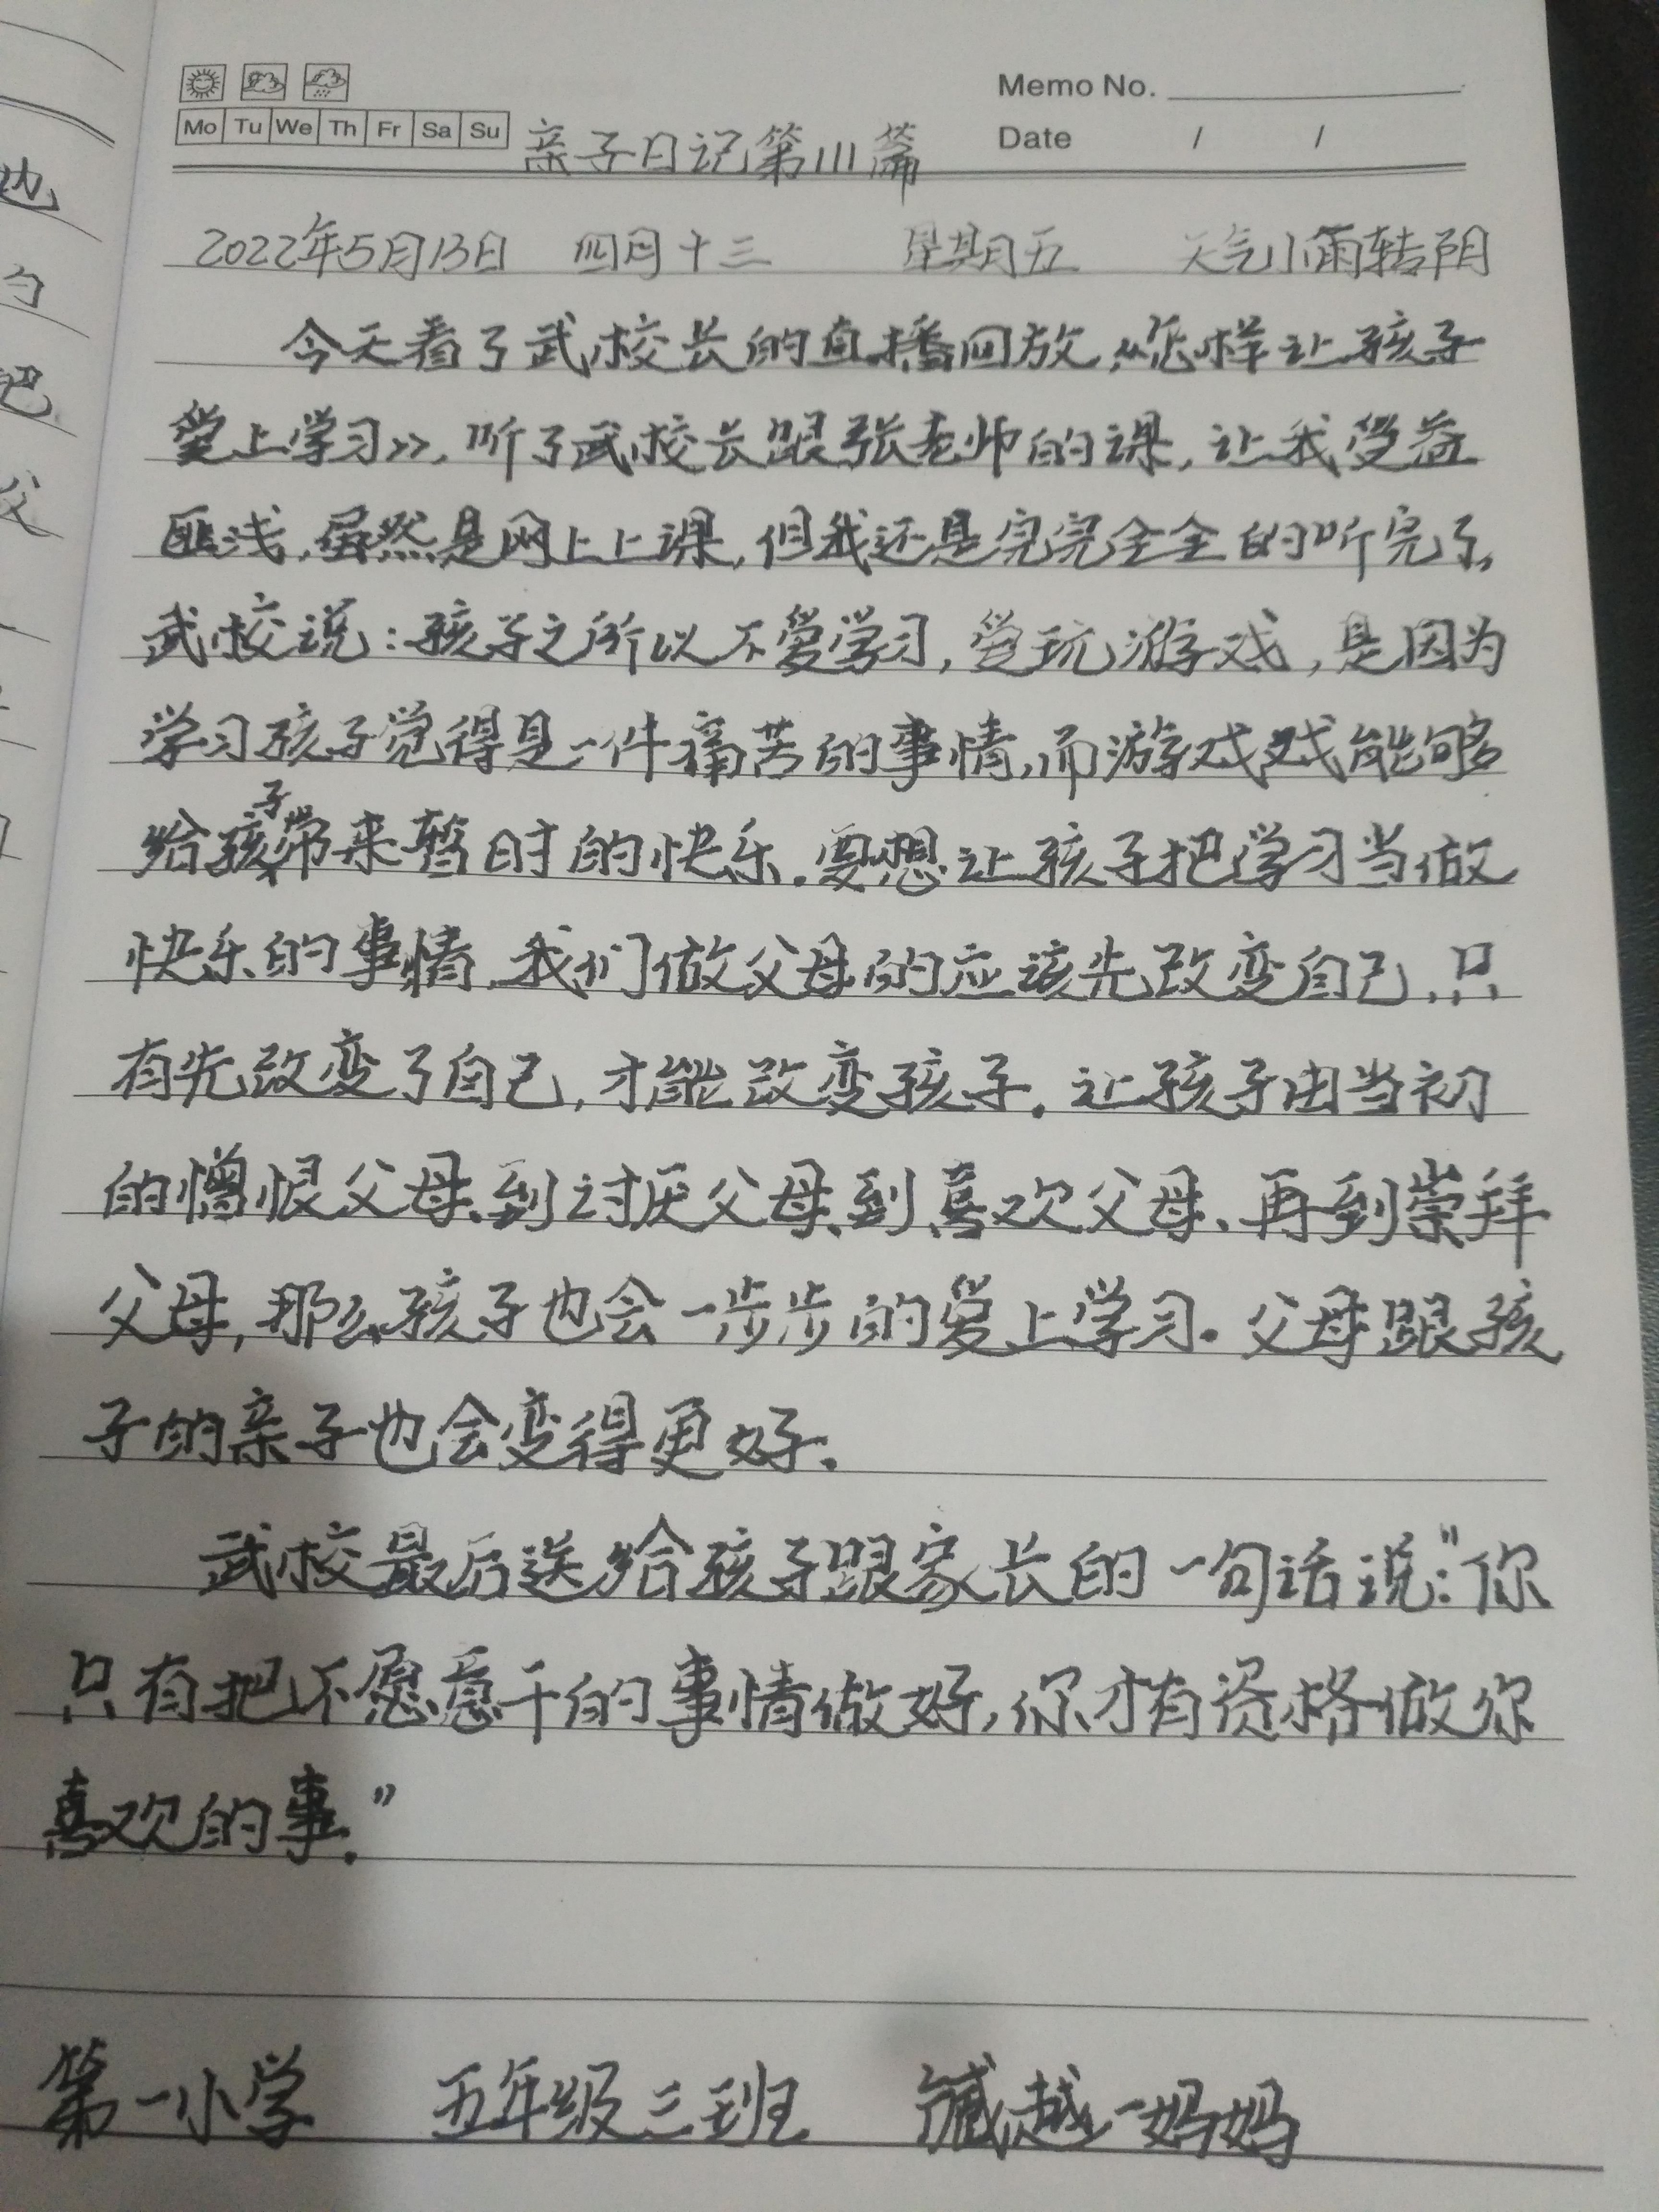 Memo No.
Mo Tu We Th Fr Sa Su
Date / /
亲子日记第111篇
2022年5月13日 四月十三 星期五 天气小雨转阴
今天看了武校长的直播回放,《怎样让孩子
爱上学习》,听了武校长跟张老师的课,让我受益
匪浅,虽然是网上上课,但我还是完完全全的听完了,
武校说:孩子之所以不爱学习,爱玩游戏,是因为
学习孩子觉得是一件痛苦的事情,而游戏戏能够
给孩子带来暂时的快乐.要想让孩子把学习当做
快乐的事情,我们做父母的应该先改变自己,只
有先改变了自己,才能改变孩子.让孩子由当初
的憎恨父母、到讨厌父母、到喜欢父母、再到崇拜
父母,那么孩子也会一步步的爱上学习.父母跟孩
子的亲子也会变得更好.
武校最后送给孩子跟家长的一句话说:"你
只有把不愿意干的事情做好,你才有资格做你
喜欢的事."
第一小学 五年级三班 越一妈妈
也
勺
巴
父